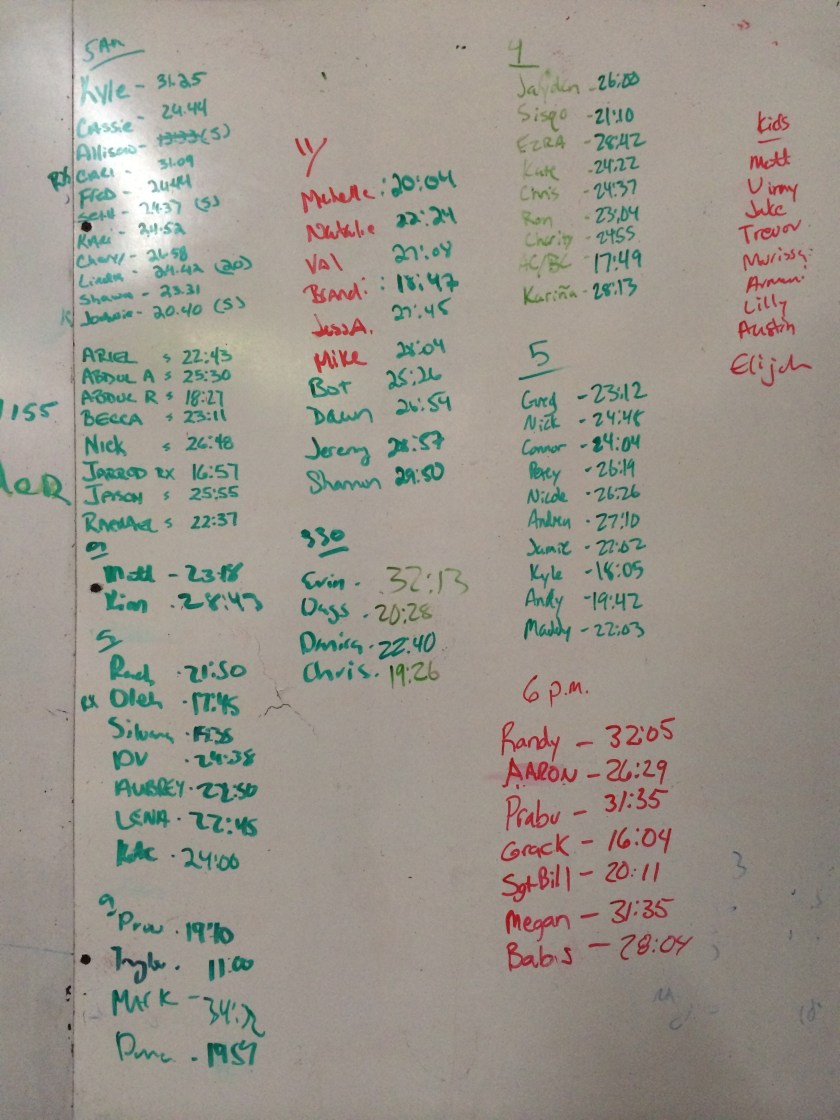 5AM
Kyle - 31.25
Cassie 24.44
Allison - (S)
RX - 31.09
Fred - 24:44
- 24.37 (S)
- 24.52
Cheryl - 26.58
Linda - 24.42 (20)
Shawn - 23.31
- 20.40 (S)
ARIEL S 22:43
ABDUL A S 25:30
ABDUL R S 18:27
BECCA S 23:11
NICK S 26:48
JARROD RX 16:57
JASON S 25:55
RACHAEL S 22:37
1155
9
Matt - 23:18
Kim . 28:43
5
Rach . 21:50
RX Oleh . 17:45
Silvana
DV . 24:38
AUBREY . 27:50
LENA . 22:45
Kate . 24:00
9
. 19:10
. 11:00
MARK -
. 19:57
11
Michelle : 20:04
Natalie 22:24
Val 27:08
Brandi : 18:47
Jess A. 27:45
Mike 28:04
Bot 25:26
Dawn 26:54
Jeremy 28:57
Shannon 29:50
330
Erin . 32:13
Dags . 20:28
. 22:40
Chris . 19:26
4
Jayden - 26:00
Sisqo - 21:10
EZRA - 28:42
Kate - 24:22
Chris - 24:37
Ron - 23:04
Charity - 2455
AC/BC 17:49
Kariña - 28:13
5
Greg - 23:12
Nick - 24:48
Connor - 24:04
Percy - 26:19
Nicole - 26:26
Andrew - 27:10
Jamie - 22:02
Kyle - 18:05
Andy - 19:42
Maddy - 22:03
6 p.m.
Randy - 32:05
AARON - 26:29
Prabu - 31:35
Grack - 16:04
Sgt Bill - 20:11
Megan - 31:35
Babis - 28:04
Kids
Matt
Vinny
Jake
Trevor
Marissa
Armani
Lilly
Austin
Elijah